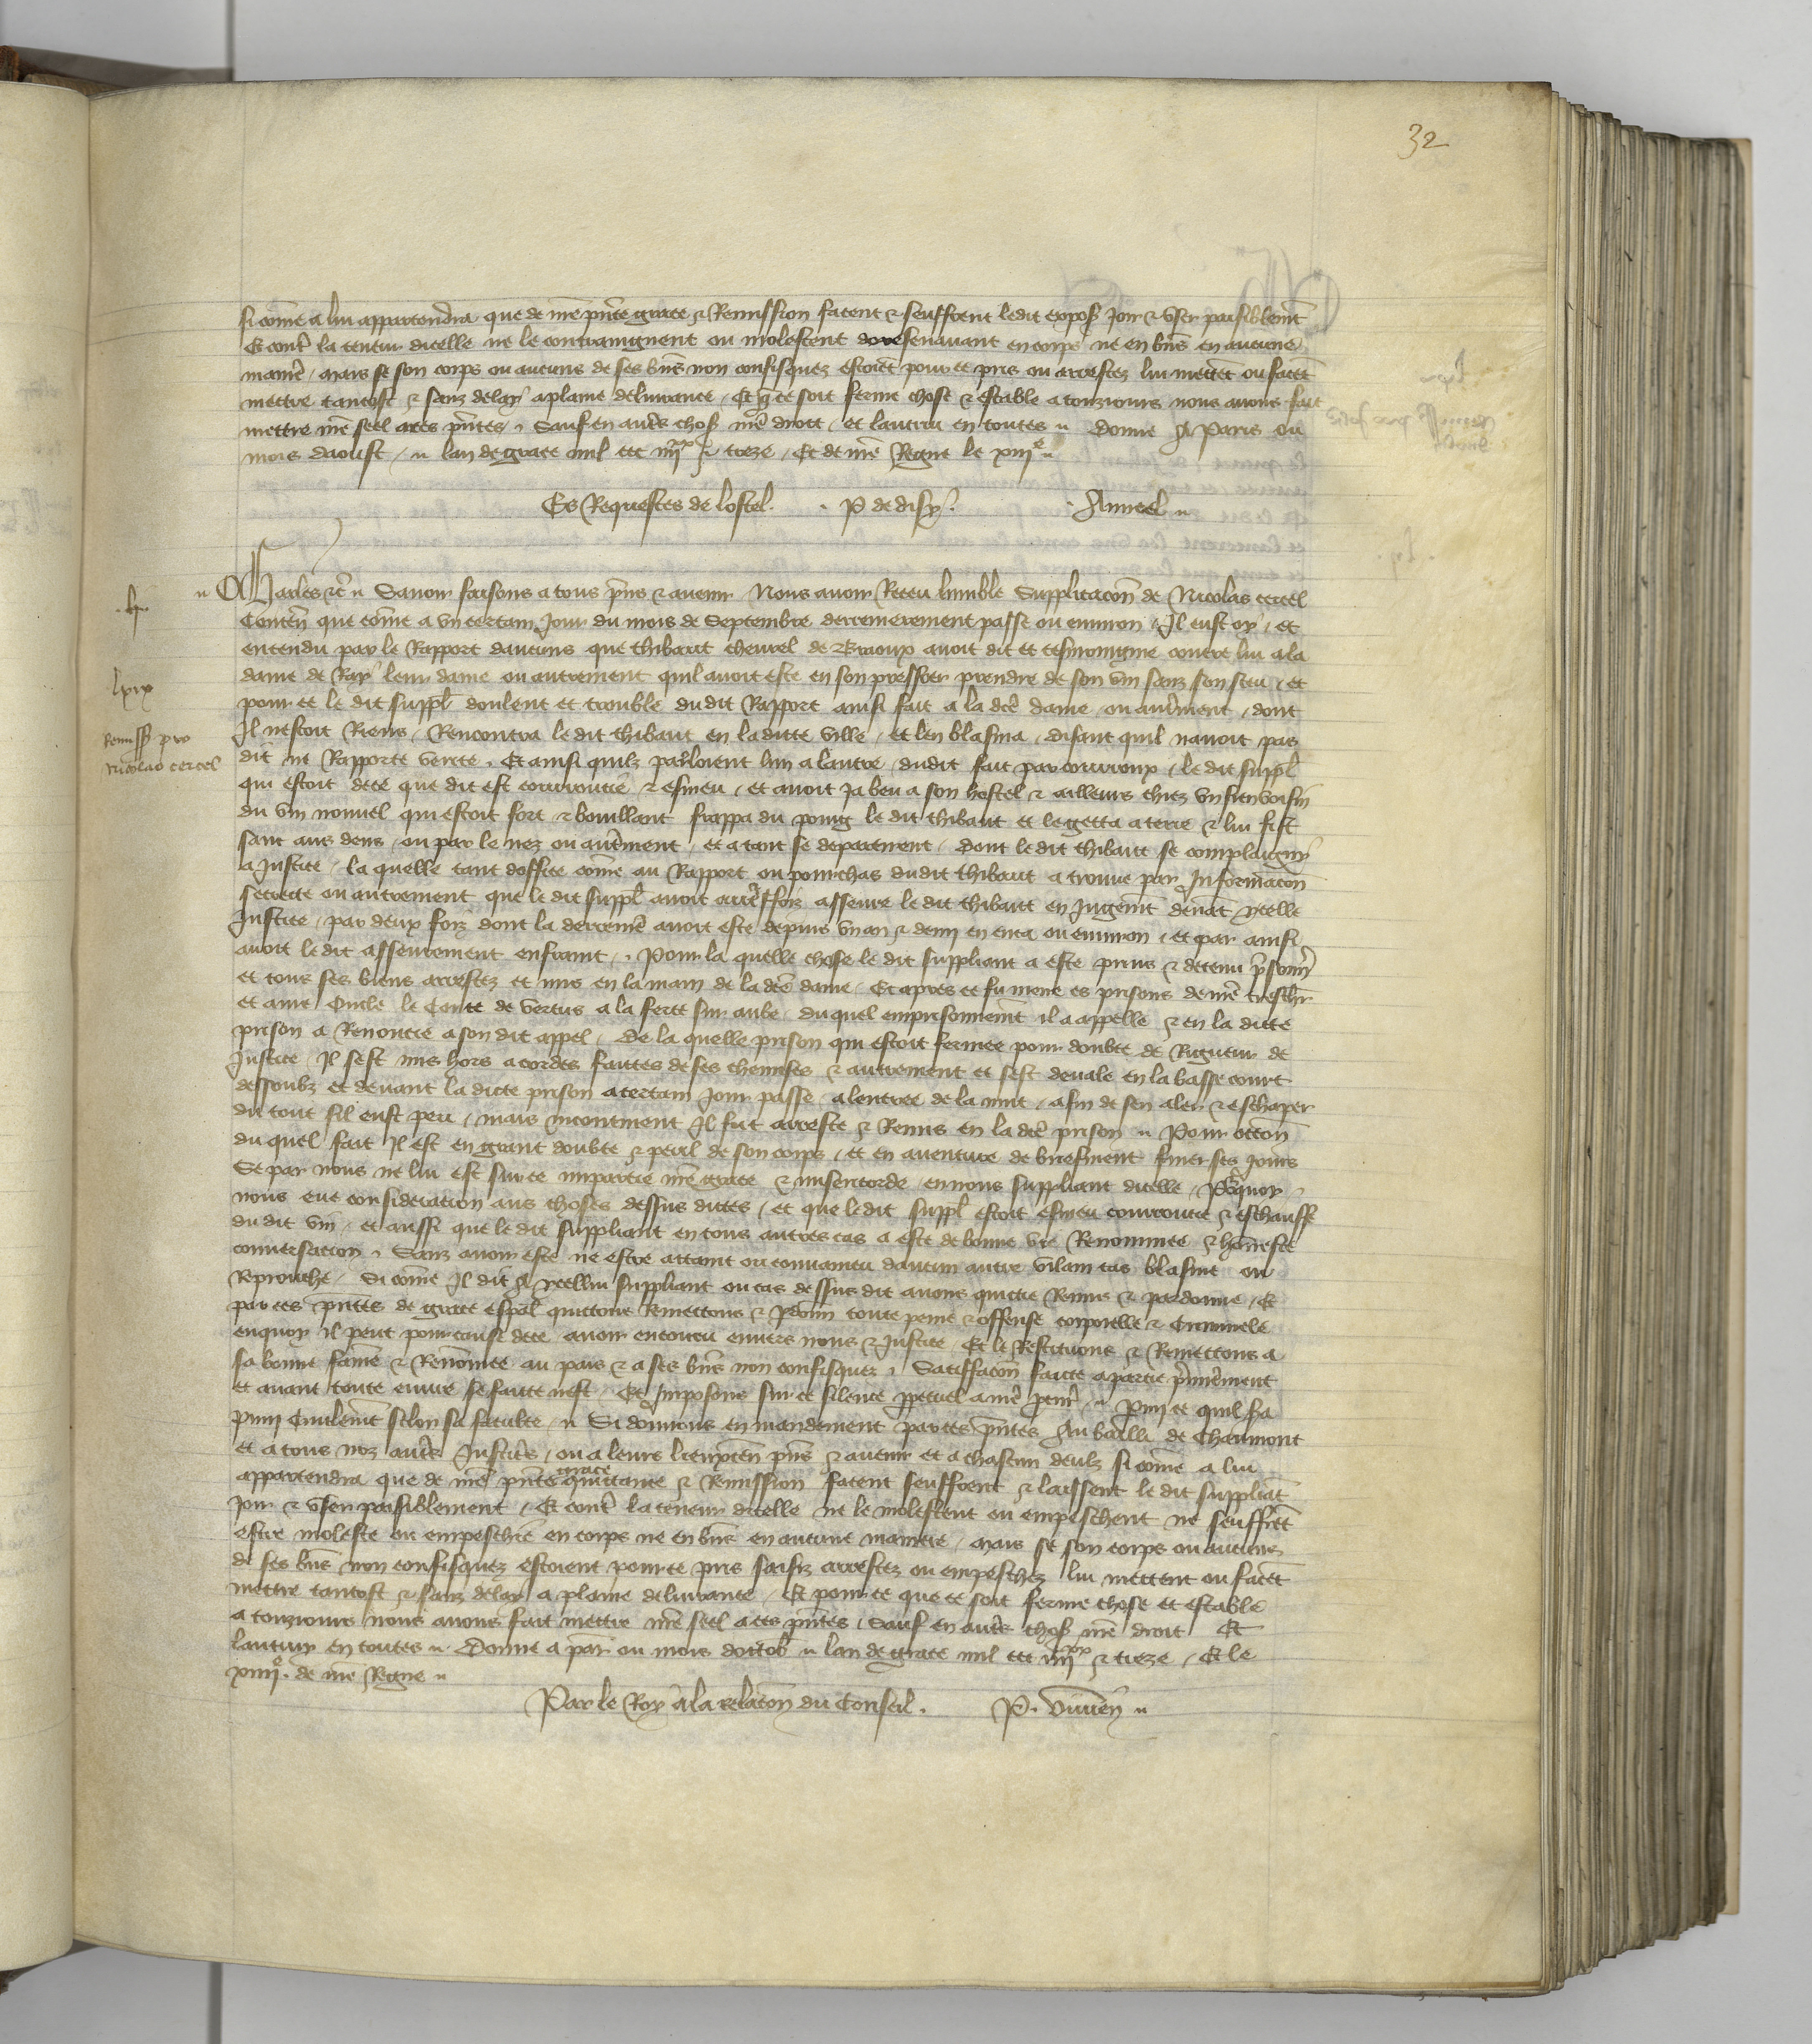 32
si come a lui appartendra que de nre pnte grace & Remission facent & seuffrent ledit expos Joir & user paisiblemt
Et contr la teneur dicelle ne le contraingnent ou molestent doresenavant en corps ne en bns en aucune
manie, mais se son corps ou aucuns de ses bns non confisquez estoiet pour ce pris ou arrestez lui mettet ou facet
mettre tantost & sanz delay a plaine delivrance, Et q ce soit ferme chose & estable a tousiours nous avons fait
mettre nre seel a ces pntes, Sauf en autrs chos nre droit, et lautruy en toutes Donne A Paris ou
mois daoust, lan de grace mil ccc iiijxx & treze, Et de nre Regne le xiije
Es Requestes de lostel. P de disy. Anneel
Charles &c Savoir faisons a tous pns & avenir Nous avoir Receu lumble Supplicacon de Nicolas cercel
Conten que come a un certain Jour du mois de Septembre derrenierement passe ou environ, Il eust oy, et
entendu par le Rapport daucuns que thibaut chevrel de avoit dit et tesmoingne contre lui a la
dame de Ray leur dame ou autrement quil avoit este en son pressoer prendre de son vin sanz son sceu, et
pour ce le dit suppl doulent et trouble dudit Rapport ainsi fait a la dce dame ou autrement, dont
Il nestoit Riens, Rencontra le dit thibaut en la ditte ville, et len blasma, disant quil navoit pas
dit ne Rapporte verite, Et ainsi quilz parloient lun a lautre dudit fait par courroux, le dit suppl
qui estoit de ce que dit est courroucie & esmeu, et avoit ja beu a son hostel & ailleurs chiez un sien voisin
du vin nouvel qui estoit fort & bouillant frappa du poing le dit thibaut et le getta a terre & lui fist
sanc aus dens, ou par le nez ou autrment, et a tant se departirent, Dont le dit thibaut se complaigny
a Justice, la quelle tant doffice come au Rapport ou pourchas dudit thibaut a trouve par Informacon
secrette ou autrement que le dit suppl avoit autresfoiz asseure le dit thibaut en Jugemt devat ycelle
Justice, par deux foiz dont la derrenie avoit este depuis un an & demi en enca ou environ, et par ainsi
avoit le dit asseurement enfraint, Pour la quelle chose le dit suppliant a este prins & detenu prisonnr
et tous ses biens arrestez et mis en la main de la dce dame, Et apres ce fu mene es prisons de nre treschr
et ame Oncle le Conte de Vertus a la ferte sur aube, du quel emprisonnemt il a appelle & en la ditte
prison a Renoncie a son dit appel, De la quelle prison qui estoit fermee pour doubte de Rigueur de
Justice, Il sest mis hors a cordes faittes de ses chemises & autrement et sest devale en la basse court
dessoubz et devant la dicte prison a certain Jour passe a lentree de la nuit, afin de sen aler & eschaper
du tout sil eust peu, mais incontinent Il fut arreste & Remis en la dce prison Pour occon
du quel fait Il est en grant doubte & peril de son corps, et en aventure de briefment finer ses Jours
Se par nous ne lui est sur ce impartie nre grace & misericorde en nous suppliant dicelle, Pourquoy
nous eue consideracion aus choses dessus dittes, et que le dit suppl estoit esmeu courroucie & eschauffe
du dit vin, et aussi que le dit suppliant en tous autres cas a este de bonne vie Renommee & honneste
conversacion, Sanz avoir este ne estre attaint ou convaincu daucun autre vilain cas blasme ou
Reprouche, Si come Il dit A ycellui suppliant ou cas dessus dit avons quicte Remis & pardonne, Et
par ces pntes de grace espal quittons Remettons & Pdonn toute peine & offense corporelle & Criminele
en quoy il peut pour cause de ce avoir encouru envers nous & Justice, Et le Restituons & Remettons a
sa bonne fame & Renomee au pais & a ses bns non confisquez, Satisfacon faitte a partie prmierement
et avant toute euvre se faitte nest, Et Imposons sur ce silence ppetuel a nre pcur, pmi ce quil sa
puni Civilemt selon sa faculte, Si donnons en mandement par ces pntes Au bailli de Chaumont
et a tous noz autrs Justicrs, ou a leurs lieuxten pns & avenir et a chascun deulz si come a lui
appartendra que de nre pnte grace quittance & Remission facent seuffrent & laissent le dit suppliat
Joir & user paisiblement, Et contr la teneur dicelle ne le molestent ou empeschent ne seuffret
estre moleste ou empeschie en corps ne en bns en aucune maniere, mais se son corps ou aucuns
de ses bns non confisquez estoient pour ce pris saisiz arrestez ou empeschez lui mettent ou facet
mettre tantost & sanz delay a plaine delivrance, Et pour ce que ce soit ferme chose et estable
a tousiours nous avons fait mettre nre seel a ces pntes, Sauf en autrs chos nre droit Et
lautruy en toutes Donne a par ou mois doctob lan de grace mil ccc iiijxx & treze, Et le
xiiije de nre Regne
Par le Roy a la relacon du Conseil. P. Vivien
lxix
Remiss pro
Nicolao cercel